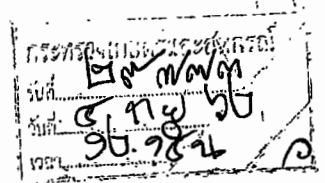 กระทรวงเกษตรและสหกรณ์
รับที่ ๒๙๗๗๓
วันที่ ๕
เวลา ๑๒.๑๕ น